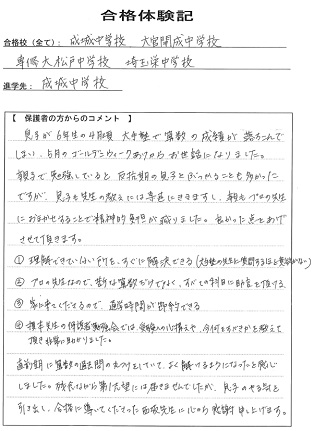 合格体験記
合格校（全て）： 成城中学校 大宮開成中学校
専修大松戸中学校 埼玉栄中学校
進学先： 成城中学校
【 保護者の方からのコメント 】
息子が6年生の4月頃 大手塾で算数の成績が落ちこんで
しまい、5月のゴールデンウィークあけからお世話になりました。
親子で勉強していると 反抗期の息子とぶつかることも多かった
ですが、息子も先生の教えには素直にききますし、親もプロの先生
におまかせすることで精神的負担が減りました。良かった点をあげ
させて頂きます。
① 理解できていない所を、すぐに解決できる
② プロの先生なので、算数だけでなく、すべての科目に助言を頂ける
③ 家に来てくださるので、通学時間が節約できる
④ 先生の保護者勉強会では、受験の心構えや、今何をすべきかを教えて
頂き非常に助かりました。
直前期に算数の過去問の
しました。残念ながら第1志望には届きませんでしたが、息子のやる気を
引き出し、合格に導いてくださった西坂先生に心から感謝申し上げます。